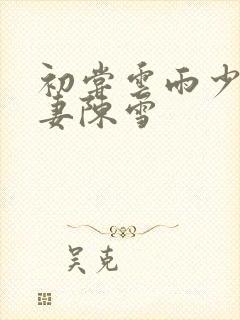 初尝云雨少
妻陈雪
吴克